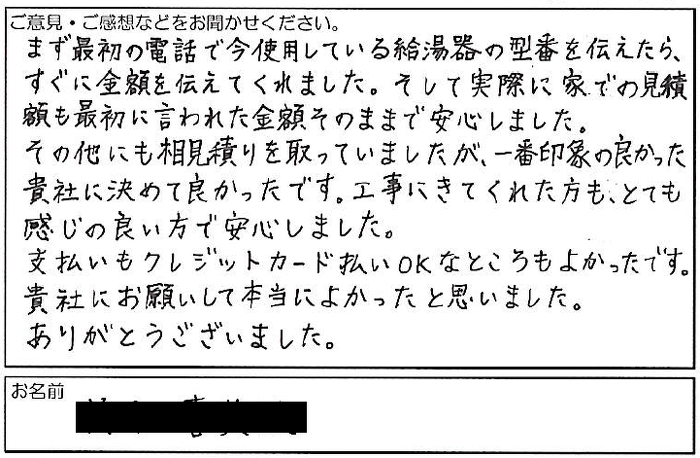 ご意見・ご感想などをお聞かせください。
まず最初の電話で今使用している給湯器の型番を伝えたら、
すぐに金額を伝えてくれました。そして実際に家での見積
額も最初に言われた金額そのままで安心しました。
その他にも相見積りを取っていましたが、一番印象の良かった
貴社に決めて良かったです。工事にきてくれた方も、とても
感じの良い方で安心しました。
支払いもクレジットカード払いOKなところもよかったです。
貴社にお願いして本当によかったと思いました。
ありがとうございました。
お名前